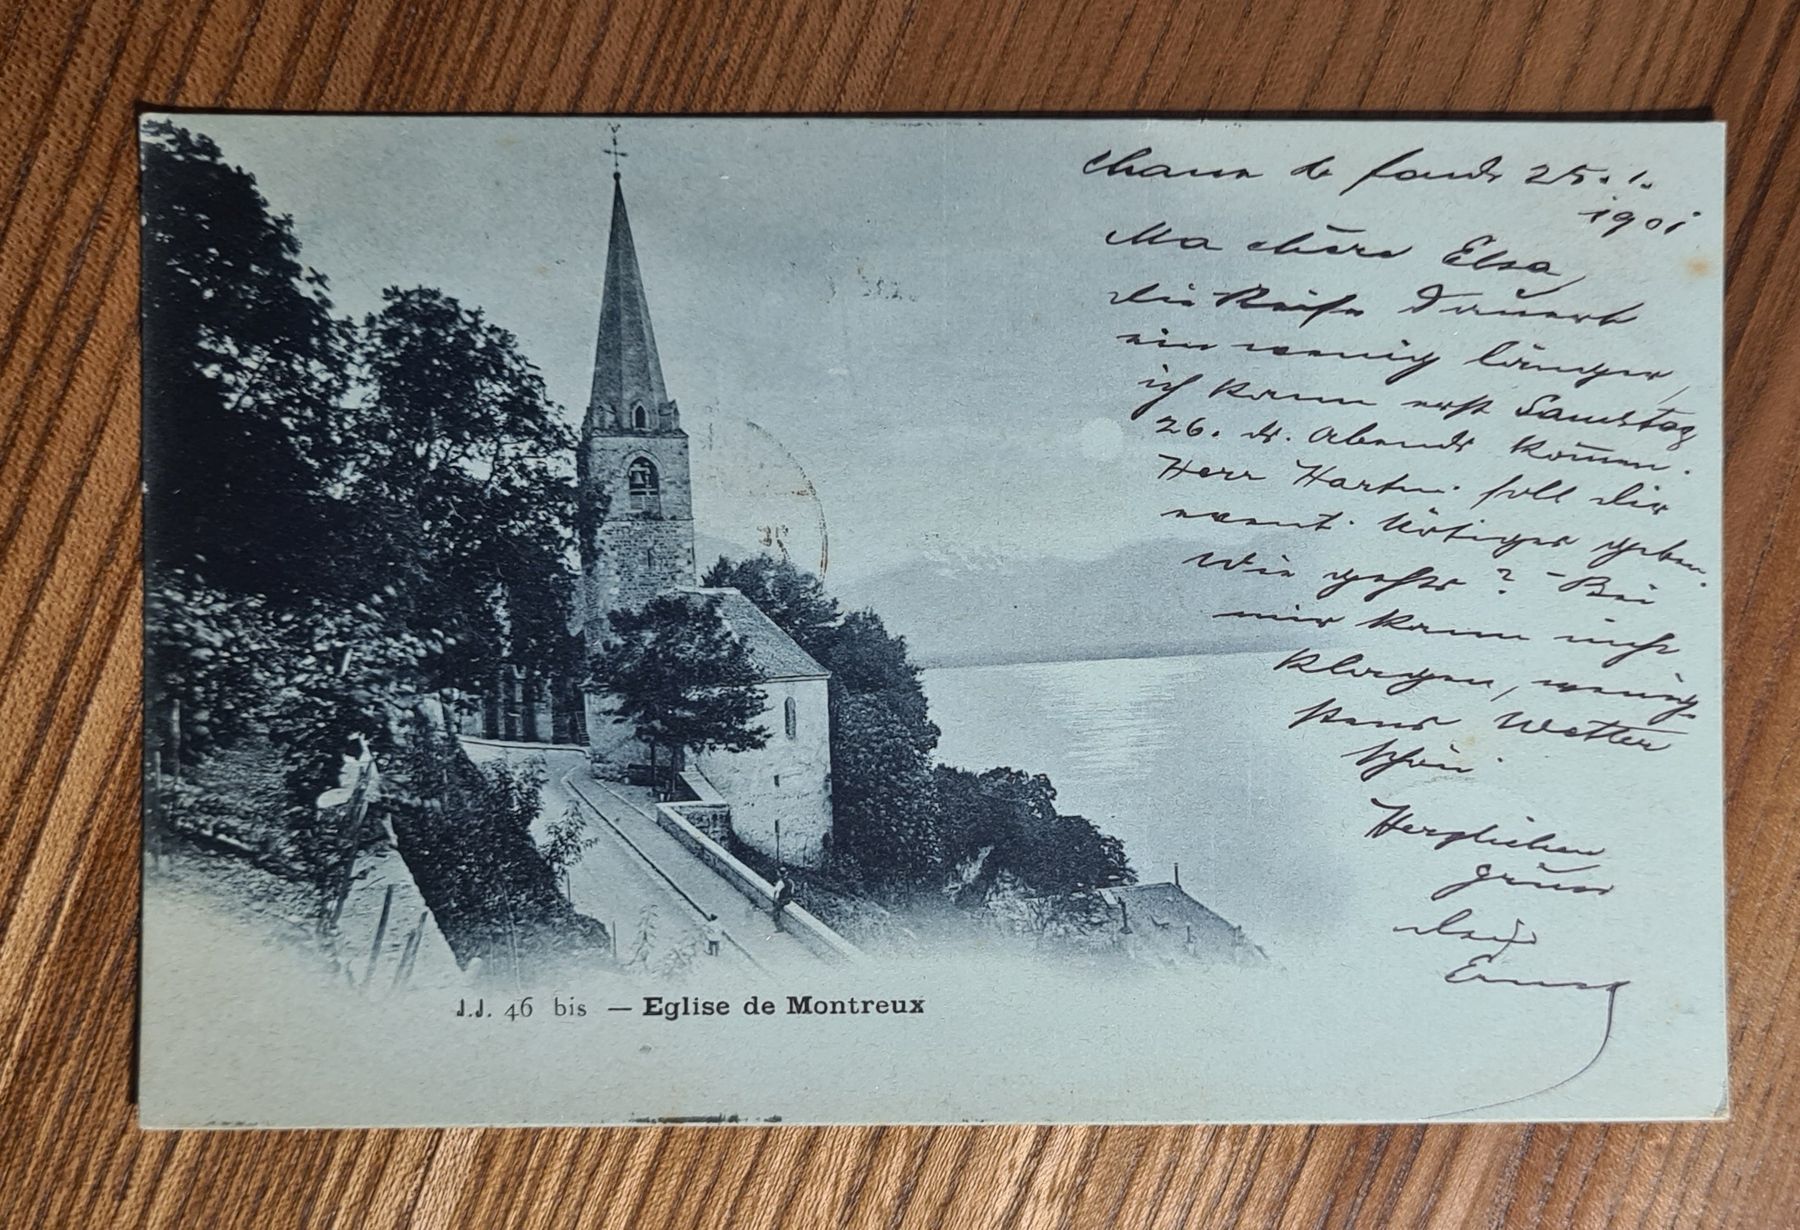 Chaux de fonds 25.1.
1901
Ma chère Elsa,
die Reise dauert
ein wenig länger,
ich kann erst Samstag
26. ds. Abends kom̄en.
Herr Hartm. soll dir
event. Nötiges geben.
Wie gehts? – Bei
mir kann nicht
klagen, wenig-
stens Wetter
schön.
Herzlichen
gruss
dein
J.J. 46 bis — Eglise de Montreux